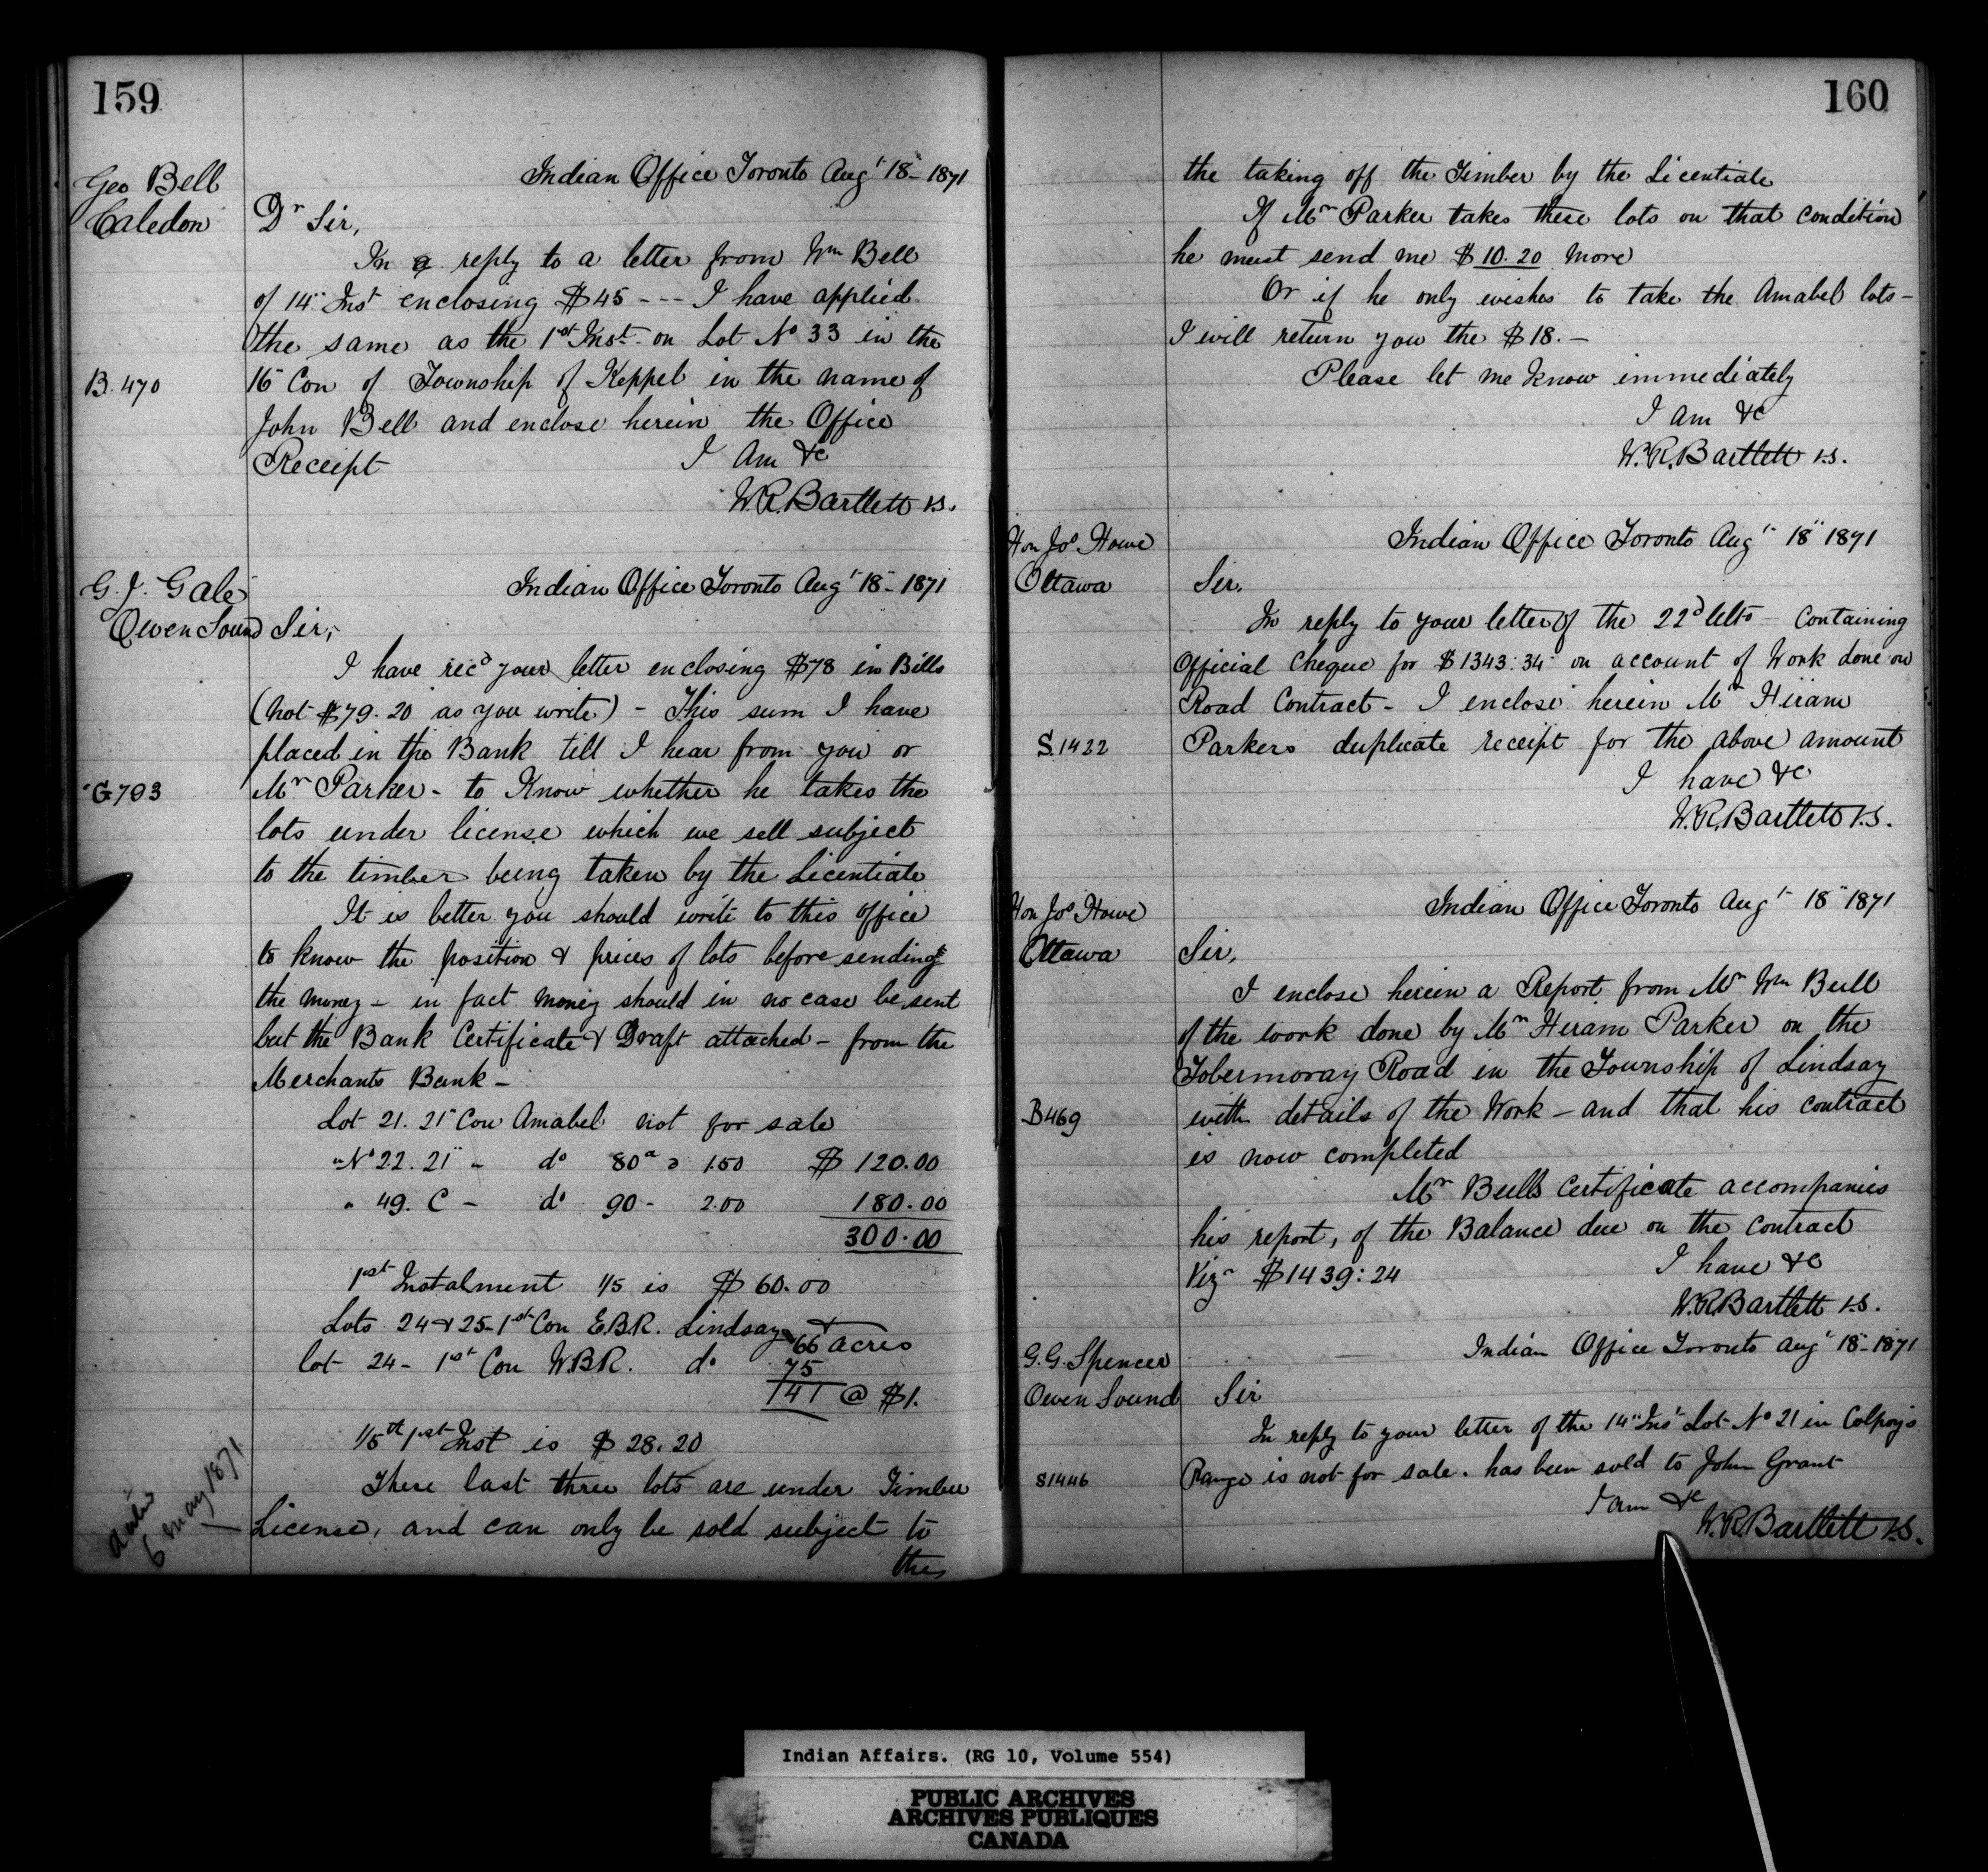 159
Geo Bell
Caledon
Indian Office Toronto Augt 18" 1871
Dr Sir,
In a reply to a letter from Wm Bell
of 14" Inst enclosing $45 --- I have applied
the same as the 1st Inst. on Lot No 33 in the
B. 470
16" Con of Township of Keppel in the name of
John Bell and enclose herein the Office
Receipt I Am &c
W.R. Bartlett V.S.
G. J. Gale
Owen Sound
Indian Office Toronto Augt 18- 1871
Sir,
I have recd your letter enclosing $78 in Bills
(not $79.20 as you write) - This sum I have
placed in the Bank till I hear from you or
G793
Mr Parker - to Know whether he takes the
lots under license which we sell subject
to the timber being taken by the Licentiate
It is better you should write to this office
to know the position & prices of lots before sending
the money - in fact money should in no case be sent
but the Bank Certificate & Draft attached - from the
Merchants Bank -
Lot 21. 21" Con Amabel not for sale
" No 22. 21" " do 80a @ 1.50 $ 120.00
" 49. C - do 90 - 2.00 180.00
300.00
1st Instalment 1/5 is $ 60.00
Lots 24 & 25 - 1st Con E.B.R. Lindsay &
66 acres
lot 24 - 1st Con W.B.R. do 75
141 @ $1.
1/5th 1st Inst is $ 28.20
These last three lots are under Timber
License, and can only be sold subject to
the
6 May 1871
160
the taking off the Timber by the Licentiate
If Mr Parker takes these lots on that condition
he must send me $ 10.20 more
Or if he only wishes to take the Amabel lots -
I will return you the $18. -
Please let me know immediately
I am &c
W.R. Bartlett V.S.
Hon Jos Howe
Ottawa
Indian Office Toronto Augt 18" 1871
Sir.
In reply to your letter of the 22d Ulto - Containing
Official Cheque for $1343:34 on account of Work done on
Road Contract - I enclose herein Mr Hiram
S.1422
Parkers duplicate receipt for the above amount
I have &c
W.R. Bartlett V.S.
Hon Jos Howe
Ottawa
Indian Office Toronto Augt 18" 1871
Sir,
I enclose herein a Report from Mr Wm Bull
of the work done by Mr Hiram Parker on the
Tobermoray Road in the Township of Lindsay
B469
with details of the Work - and that his contract
is now completed
Mr Bulls Certificate accompanies
his report, of the Balance due on the contract
Viz $1439:24 I have &c
W.R. Bartlett V.S.
G.G. Spencer
Owen Sound
Indian Office Toronto Augt 18- 1871
Sir
In reply to your letter of the 14" Inst Lot No 21 in Colpoys
S1446
Range is not for sale. has been sold to John Grant
I am &c
W.R. Bartlett V.S.
Indian Affairs. (RG 10, Volume 554)
PUBLIC ARCHIVES
ARCHIVES PUBLIQUES
CANADA